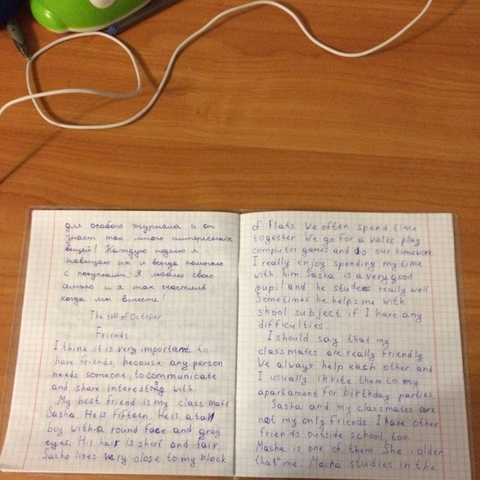 для особого журнала и он
знает так много интересных
вещей! Каждую неделю я
навещаю их и всегда помогаю
с покупками. Я люблю свою
семью и я так счастлив
когда мы вместе!
The of October
Friends
I think it is very important to
have friends, because any person
needs someone to communicate
and share interesting with.
My best friend is my class mate
Sasha. He is fifteen. He is a tall
boy with a round face and grey
eyes. His hair is short and fair.
Sasha lives very close to my block
of flats. We often spend time
together. We go for a walk, play
computer games and do our homework
I really enjoy spending my time
with him. Sasha is a very good
pupil and he studes really well
Sometimes he helps me with
shool subject if I have any
difficulties.
I should say that my
classmates are really friendly
We always help each other and
I usually invite them to my
apartament for birthday parties.
Sasha and my classmates are
not my only friends. I have other
friends outside school, too.
Masha is one of them. She older
than me. Masha studies in the